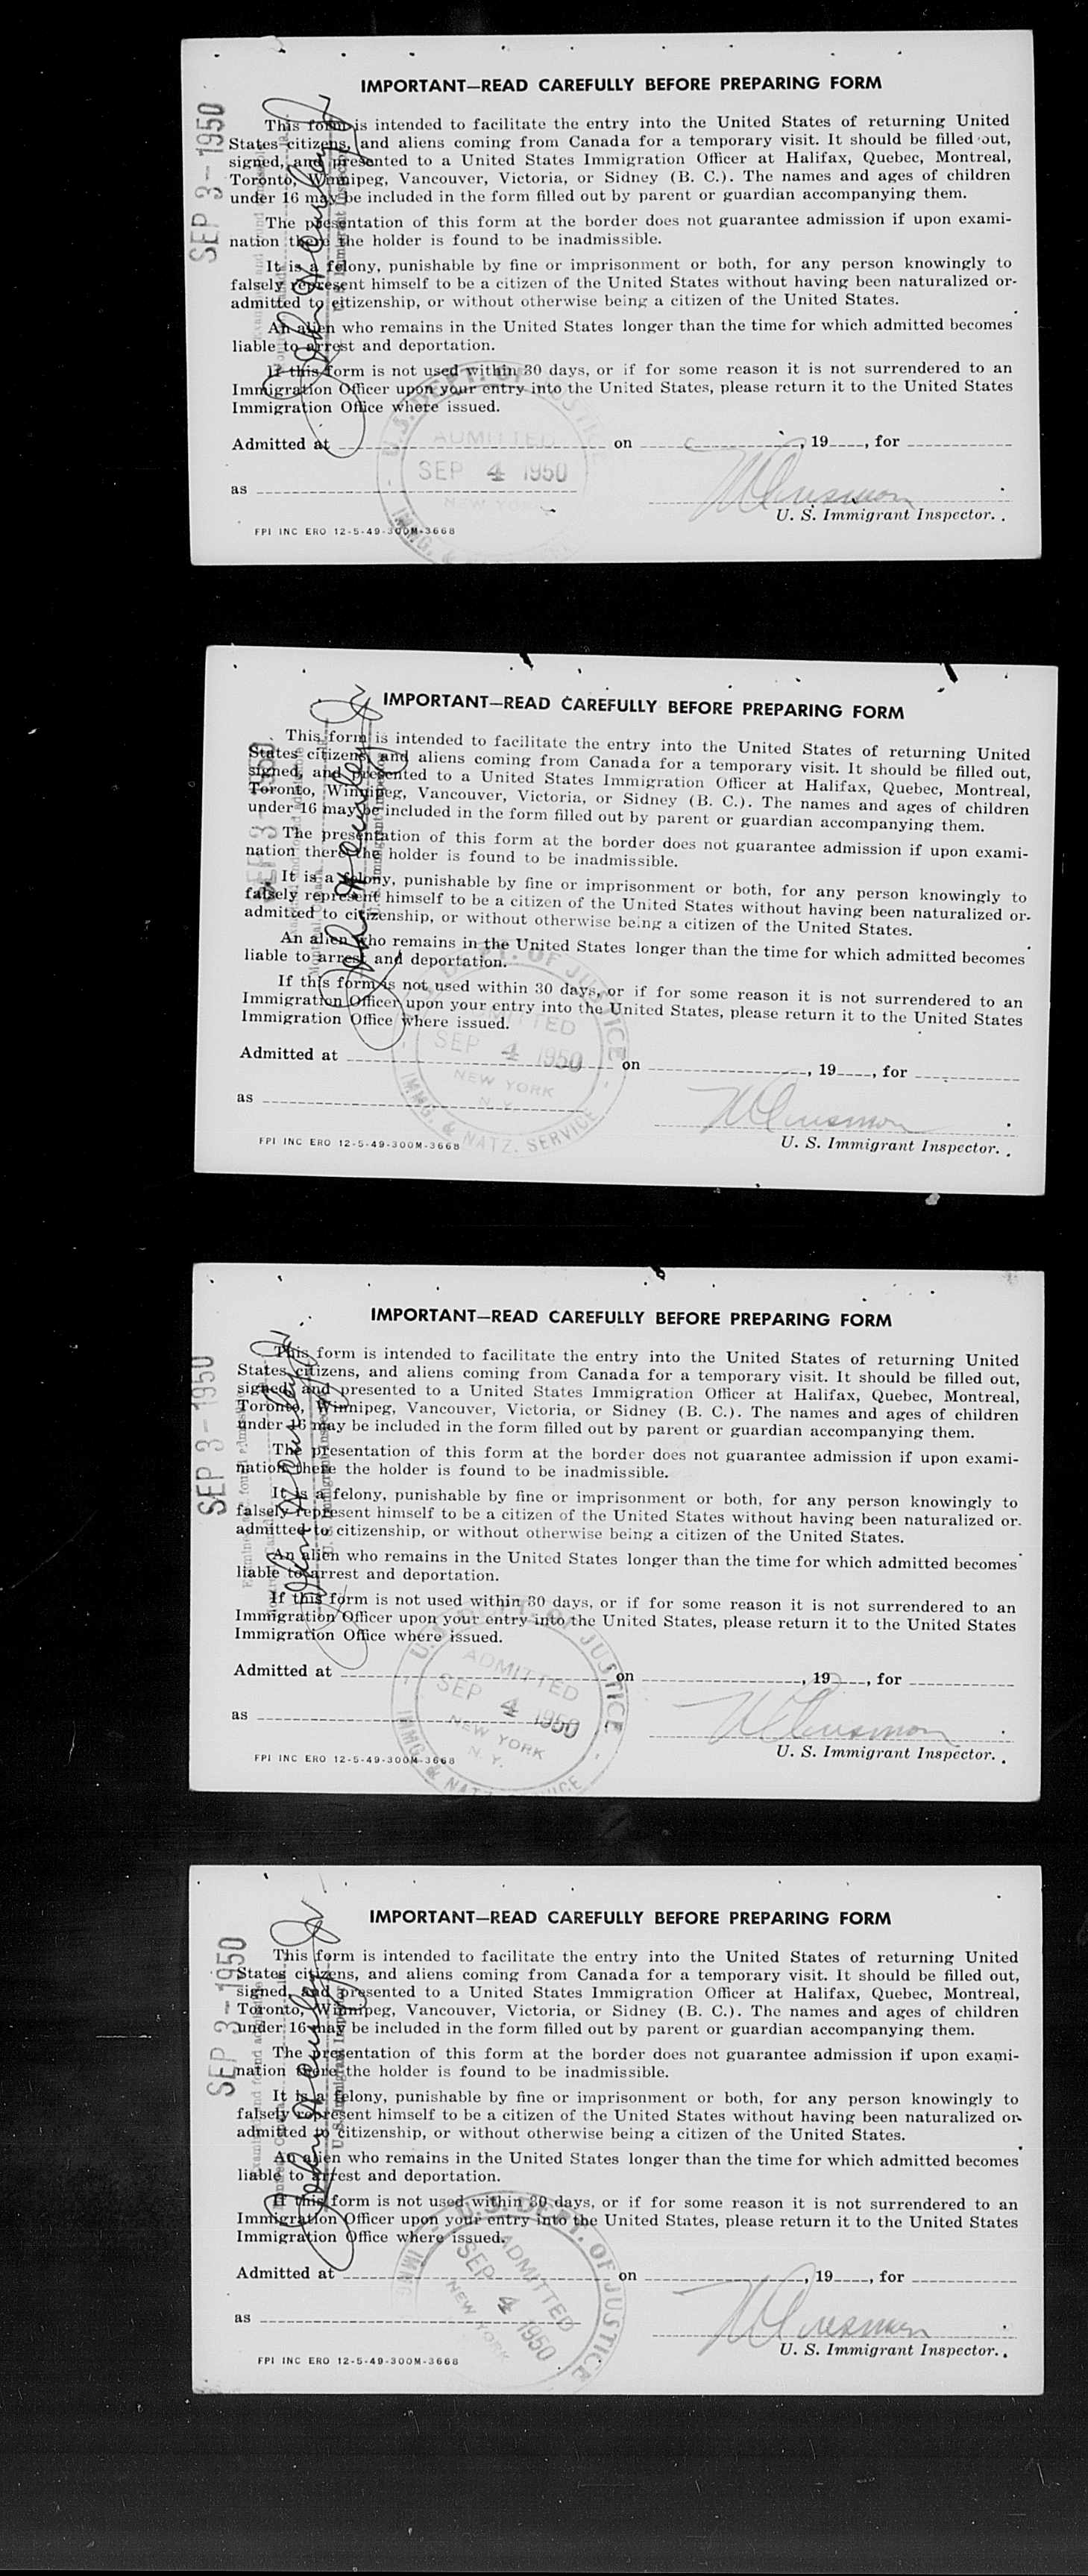 IMPORTANT—READ CAREFULLY BEFORE PREPARING FORM
This form is intended to facilitate the entry into the United States of returning United
States citizens, and aliens coming from Canada for a temporary visit. It should be filled out,
signed, and presented to a United States Immigration Officer at Halifax, Quebec, Montreal,
Toronto, Winnipeg, Vancouver, Victoria, or Sidney (B. C.). The names and ages of children
under 16 may be included in the form filled out by parent or guardian accompanying them.
The presentation of this form at the border does not guarantee admission if upon exami-
nation there the holder is found to be inadmissible.
It is a felony, punishable by fine or imprisonment or both, for any person knowingly to
falsely represent himself to be a citizen of the United States without having been naturalized or
admitted to citizenship, or without otherwise being a citizen of the United States.
An alien who remains in the United States longer than the time for which admitted becomes
liable to arrest and deportation.
If this form is not used within 30 days, or if for some reason it is not surrendered to an
Immigration Officer upon your entry into the United States, please return it to the United States
Immigration Office where issued.
Admitted at on , 19 , for
as
U. S. Immigrant Inspector.
FPI INC ERO 12-5-49-300M-3668
SEP 3 - 1950
U. S. Immigrant Inspector
U.S. DEPT. OF JUSTICE
ADMITTED
SEP 4 1950
NEW YORK
IMMG. &
IMPORTANT—READ CAREFULLY BEFORE PREPARING FORM
This form is intended to facilitate the entry into the United States of returning United
States citizens, and aliens coming from Canada for a temporary visit. It should be filled out,
signed, and presented to a United States Immigration Officer at Halifax, Quebec, Montreal,
Toronto, Winnipeg, Vancouver, Victoria, or Sidney (B. C.). The names and ages of children
under 16 may be included in the form filled out by parent or guardian accompanying them.
The presentation of this form at the border does not guarantee admission if upon exami-
nation there the holder is found to be inadmissible.
It is a felony, punishable by fine or imprisonment or both, for any person knowingly to
falsely represent himself to be a citizen of the United States without having been naturalized or
admitted to citizenship, or without otherwise being a citizen of the United States.
An alien who remains in the United States longer than the time for which admitted becomes
liable to arrest and deportation.
If this form is not used within 30 days, or if for some reason it is not surrendered to an
Immigration Officer upon your entry into the United States, please return it to the United States
Immigration Office where issued.
Admitted at on , 19 , for
as
U. S. Immigrant Inspector.
FPI INC ERO 12-5-49-300M-3668
SEP 3 - 1950
DEPT. OF JUSTICE
ADMITTED
SEP 4 1950
NEW YORK
N. Y.
IMMG. & NATZ. SERVICE
IMPORTANT—READ CAREFULLY BEFORE PREPARING FORM
This form is intended to facilitate the entry into the United States of returning United
States citizens, and aliens coming from Canada for a temporary visit. It should be filled out,
signed, and presented to a United States Immigration Officer at Halifax, Quebec, Montreal,
Toronto, Winnipeg, Vancouver, Victoria, or Sidney (B. C.). The names and ages of children
under 16 may be included in the form filled out by parent or guardian accompanying them.
The presentation of this form at the border does not guarantee admission if upon exami-
nation there the holder is found to be inadmissible.
It is a felony, punishable by fine or imprisonment or both, for any person knowingly to
falsely represent himself to be a citizen of the United States without having been naturalized or
admitted to citizenship, or without otherwise being a citizen of the United States.
An alien who remains in the United States longer than the time for which admitted becomes
liable to arrest and deportation.
If this form is not used within 30 days, or if for some reason it is not surrendered to an
Immigration Officer upon your entry into the United States, please return it to the United States
Immigration Office where issued.
Admitted at on , 19 , for
as
U. S. Immigrant Inspector.
FPI INC ERO 12-5-49-300M-3668
SEP 3 - 1950
U.S. DEPT. OF JUSTICE
ADMITTED
SEP 4 1950
NEW YORK
N. Y.
IMMG. & NATZ. SERVICE
IMPORTANT—READ CAREFULLY BEFORE PREPARING FORM
This form is intended to facilitate the entry into the United States of returning United
States citizens, and aliens coming from Canada for a temporary visit. It should be filled out,
signed, and presented to a United States Immigration Officer at Halifax, Quebec, Montreal,
Toronto, Winnipeg, Vancouver, Victoria, or Sidney (B. C.). The names and ages of children
under 16 may be included in the form filled out by parent or guardian accompanying them.
The presentation of this form at the border does not guarantee admission if upon exami-
nation there the holder is found to be inadmissible.
It is a felony, punishable by fine or imprisonment or both, for any person knowingly to
falsely represent himself to be a citizen of the United States without having been naturalized or
admitted to citizenship, or without otherwise being a citizen of the United States.
An alien who remains in the United States longer than the time for which admitted becomes
liable to arrest and deportation.
If this form is not used within 30 days, or if for some reason it is not surrendered to an
Immigration Officer upon your entry into the United States, please return it to the United States
Immigration Office where issued.
Admitted at on , 19 , for
as
U. S. Immigrant Inspector.
FPI INC ERO 12-5-49-300M-3668
SEP 3 - 1950
U. S. Immigrant Inspector
U.S. DEPT. OF JUSTICE
ADMITTED
SEP 4 1950
NEW YORK
IMMG